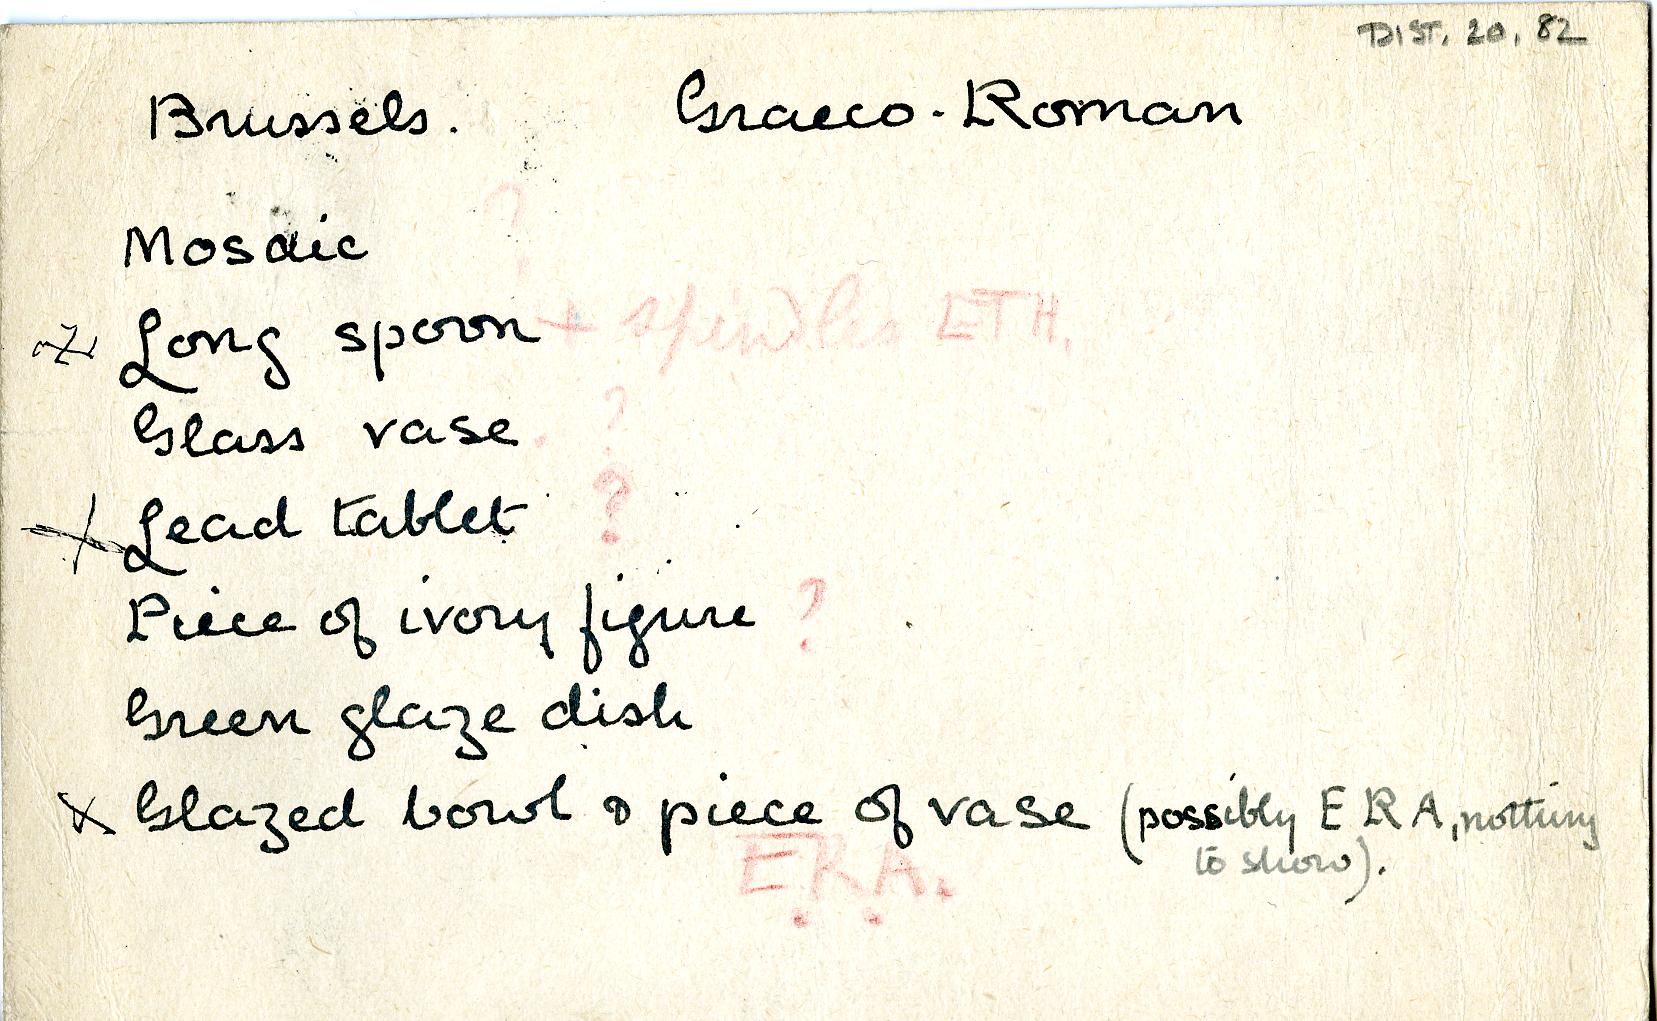 DIST. 20. 82
Brussels. Graeco-Roman
?
Mosaic
x Long spoon + spindles ETH.
Glass vase. ?
x Lead tablet ?
Piece of ivory figure ?
Green glaze dish
x Glazed bowl & piece of vase (possibly E R A, nothing
to show).
E.R.A.